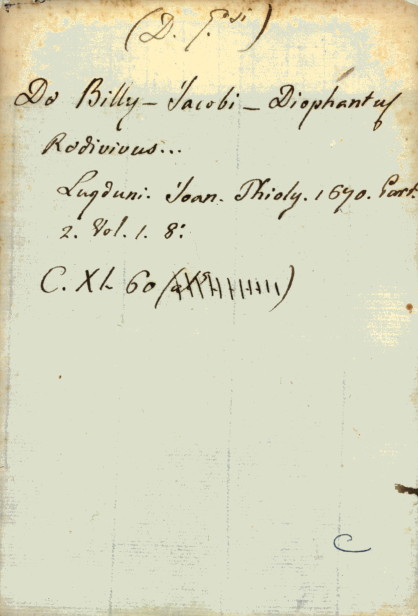 De Billy - Jacobi - Diophantus
Redivivus...
Lugduni. Joan. Thioly. 1670. Part.
2. Vol. 1. 8º.
C. XL 60
C